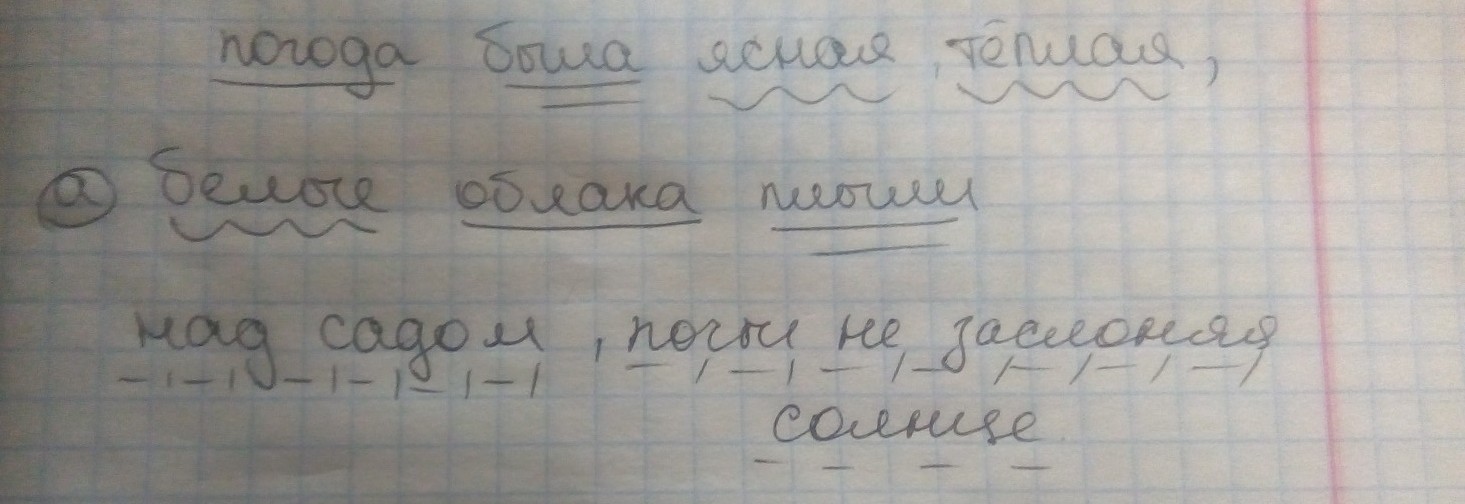 погода была ясная, тёплая,
а белые облака плыли
над садом, почти не заслоняя
солнце